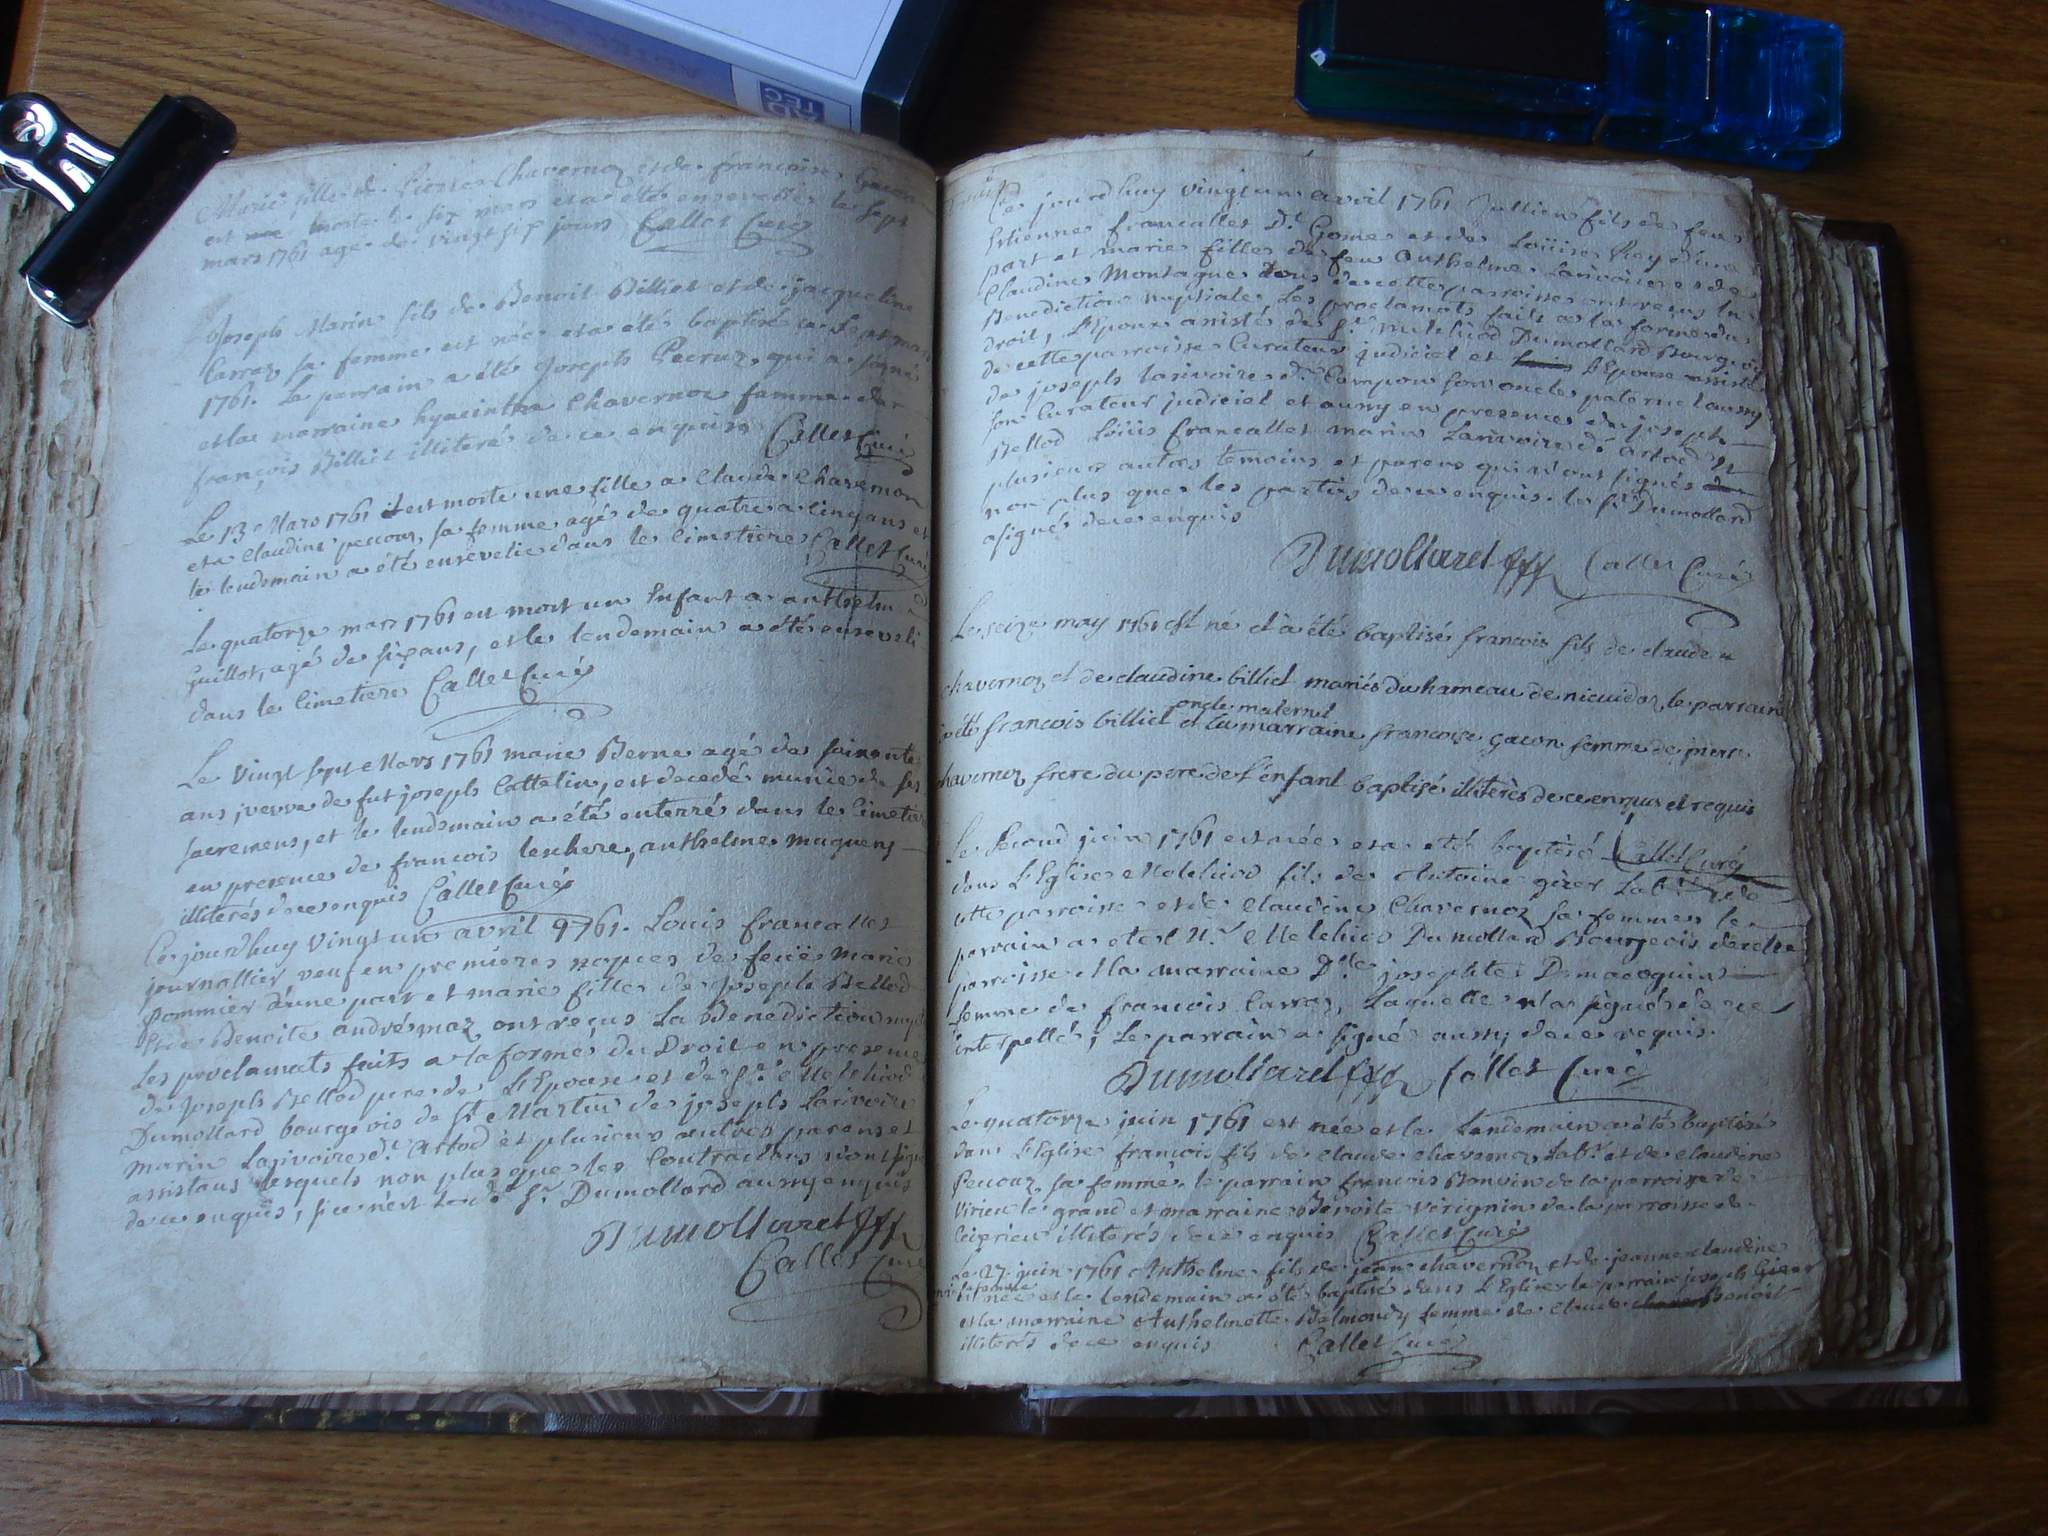 Marie fille de Pierre Chavernoz et de francoise Gacon
est morte le six mars et a été ensevelie le sept
mars 1761 agée de vingt six jours Callet Curé
Joseph Marin fils de Benoit Billiet et de jacqueline
Carraz sa femme est née et a été baptisé ce sept mars
1761. Le parrain a été Joseph Pecruz qui a signé
et la marraine hyacinthe Chavernoz femme de
françois Billiet illiteré de ce enquis Callet Curé
Le 13e Mars 1761 est morte une fille a Claude Chavernon
et a Claudine peccouz, sa femme agé de quatre a Cinq ans et
le lendemain a été ensevelie dans le Cimetiere Callet Curé
Le quatorze mars 1761 est mort un Enfant a anthelm
Guillot, agé de six ans, et le lendemain a été enseveli
dans le Cimetiere Callet Curé
Le vingt sept Mars 1761 marie Berne agé de soixante
ans, veuve de fut joseph Cattelin, est decedé munie de ses
sacremens, et le lendemain a été enterré dans le Cimetiere
en presence de francois leschere, anthelme maqueny
illiterés de ce enquis Callet Curé
Ce jourdhuy vingt un avril 1761. Louis francallet
journallier veuf en premières nopces de feüe marie
Pommier d'une part et marie fille de Joseph Bellod
et de Benoite andrémaz ont reçus la Benediction
Les proclamats faits a la forme du Droit en presence
de Joseph Bellod pere de L'Epouse et de Sr. Melchiod
Dumollard bourgeois de St Martin de joseph Larivoire
marin Larivoire dt. Artod et plusieurs autres parens et
assistans lesquels non plus que les Contractans n'ont signé
de ce enquis, si ce n'est le dt. Sr. Dumollard aussy enquis
Dumollard
Callet Curé
Ce jourdhuy vingt un avril 1761 Jullien fils de feu
Estienne francallet Dt. Gome et de Loüise Rey d'une
part et marie fille de feu Anthelme Larivoire et de
Claudine Montagne tous de cette parroisse ont reçus la
Benediction nuptiale Les proclamats faits a la forme du
droit, L'Epoux assisté de Sr. Melchiod Dumollard Bourgeois
de cette parroisse Curateur judiciel et L'Epouse assisté
de joseph larivoire dt. Campon son oncle paternel aussy
son Curateur judiciel et aussy en presence de joseph
Bellod Loüis francallet marin Larivoire dt artod et
plusieurs autres temoins et parens qui n'ont signés
non plus que les parties de ce enquis. le Sr Dumollard
a signé de ce enquis
Dumollard Callet Curé
Le seize may 1761 est né et a été baptisé francois fils de claude
chavernoz et de claudine billiet mariés du hameau de le parrain
a été francois billiet oncle maternel et la marraine francoise gacon femme de pierre
chavernoz frere du pere de l'enfant baptisé illiterés de ce enquis et requis
Le Second juin 1761 est née et a été baptisé Callet Curé
dans L'Eglise Melchiod fils de Antoine girer Labr. de
cette parroisse et de Claudine Chavernoz sa femme le
parrain a eté Sr. Melchiod Dumollard Bourgeois de cette
parroisse et la marraine Dlle josephte Dmacoguin
femme de francois Carraz, Laquelle n'a signé de ce
interpellé; Le parrain a signé aussy de ce requis.
Dumollard Callet Curé
Le quatorze juin 1761 est née et le Lendemain a été baptisé
dans L'Eglise françois fils de claude chavernoz, Labr. et de claudine
Peccouz sa femme. le parrain francois Bonvin de la parroisse de
Virieu le grand et marraine Benoite Verignin de la parroisse de
Ceiprieu illiterés de ce enquis Callet Curé
Le 27 juin 1761 Anthelme fils de jean chavernon et de jeanne claudine
sa femme est née et le lendemain a été baptisé dans L'Eglise le parrain joseph Girer
et la marraine Anthelmette Belmondy femme de claude Benoit
illiterés de ce enquis Callet Curé